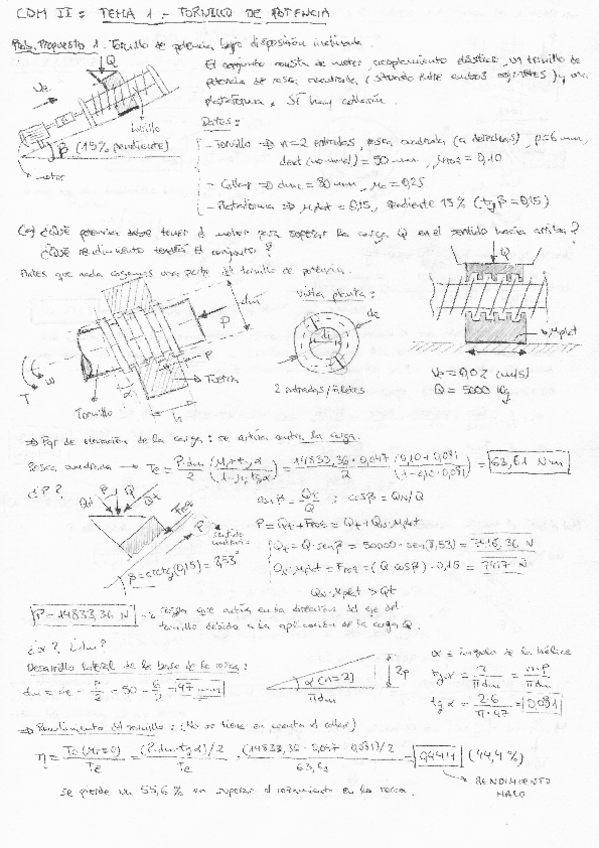 CDM II: TEMA 1.- TORNILLO DE POTENCIA
Prob. Propuesto 1. Tornillo de potencia, bajo disposición inclinada.
El conjunto consta de motor, acoplamiento elástico, un tornillo de
potencia de rosca cuadrada, (situado entre ambos cojinetes) y una
plataforma. Sí hay collarín.
Q
tornillo
β (15% pendiente)
motor
Datos:
- Tornillo ⇒ n=2 entradas, rosca cuadrada (a derechas), p=6 mm,
dext (nominal) = 50 mm, = 0,10
- Collar ⇒ dmc = 80 mm, μc = 0,25
- Plataforma ⇒ μplat = 0,15, pendiente 15% (tg β = 0,15)
(a) ¿Qué potencia debe tener el motor para superar la carga Q en el sentido hacia arriba?
¿Qué rendimiento tendrá el conjunto?
Antes que nada cogemos una parte del tornillo de potencia.
dm
P
T
ω
α
h
Tuerca
Tornillo
Vista planta:
de
di
2 entradas/filetes
Q
μplat
= 0,02 (m/s)
Q = 5000 Kg
⇒ Par de elevación de la carga: se actúa contra la carga.
Rosca cuadrada → Te = P·dm/2 (μr + tg α / 1 - μr·tg α) = 14833,36 · 0,047 / 2 (0,10 + 0,081 / 1 - 0,10·0,081) = 63,61 N·m
¿P?
sen β = Qt/Q ; cos β = QN/Q
P = Qt + FROZ = Qt + QN·μplat
Qt = Q·sen β = 50000·sen(8,53) = 7416,36 N
QN·μplat = FROZ = (Q·cos β)·0,15 = 7417 N
β = arctg(0,15) = 8,53°
QN·μplat > Qt
P = 14833,36 N → carga que actúa en la dirección del eje del
tornillo debido a la aplicación de la carga Q.
¿α? ¿dm?
Desarrollo lateral de la base de la rosca:
dm = de - p/2 = 50 - 6/2 = 47 mm
α (n=2)
2p
πdm
α ≡ ángulo de la hélice
tg α = = n·p / πdm
tg α = 2·6 / π·47 = 0,081
⇒ Rendimiento del tornillo: (No se tiene en cuenta el collar)
η = To (μr=0) / Te = (P·dm·tg α)/2 / Te = (14833,36 · 0,047 · 0,081)/2 / 63,61 = 0,444 (44,4 %)
RENDIMIENTO
MALO
Se pierde un 55,6 % en superar el rozamiento en la rosca.